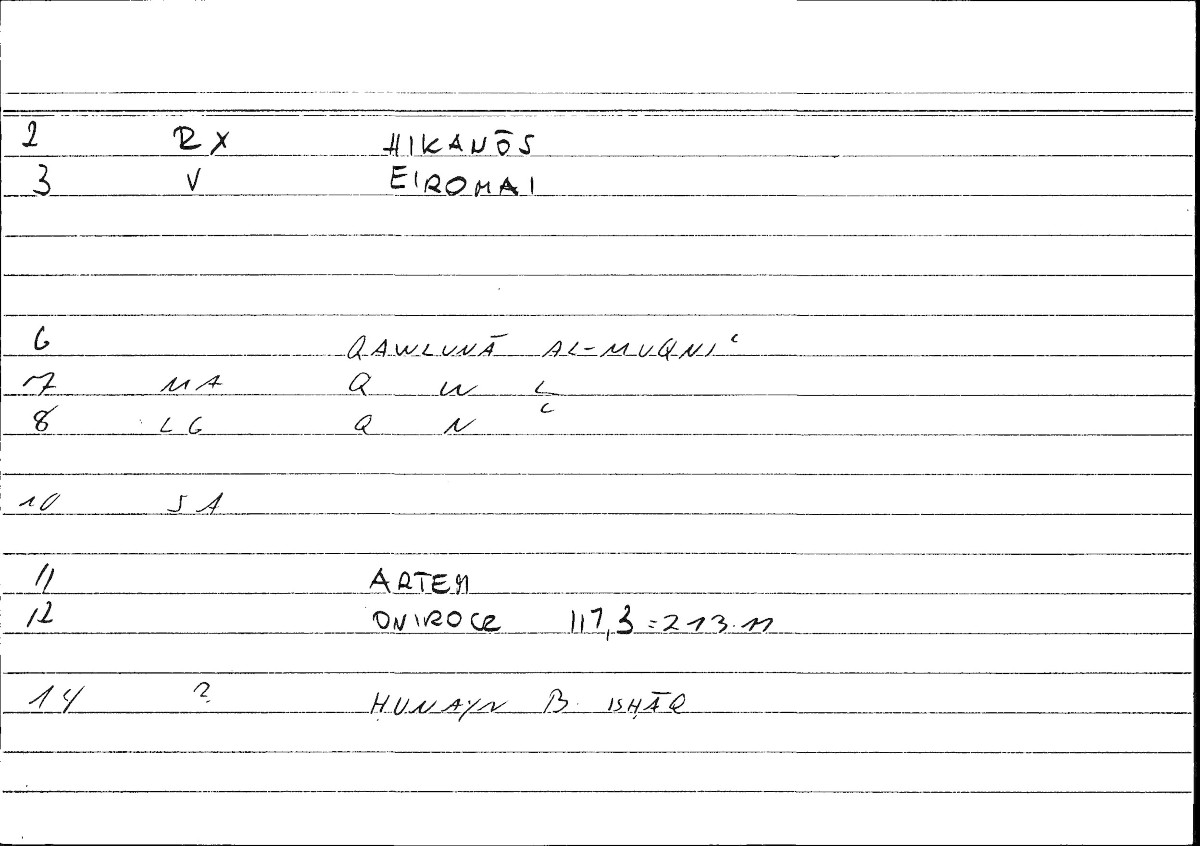 2 RX HIKANŌS
3 V EIROMAI
6 QAWLUNĀ AL-MUQNIʿ
7 MA Q W L
8 LG Q N ʿ
10 SA
11 ARTEM
12 ONIROCR 117,3 = 213.11
14 ? ḤUNAYN B. ISḤĀQ